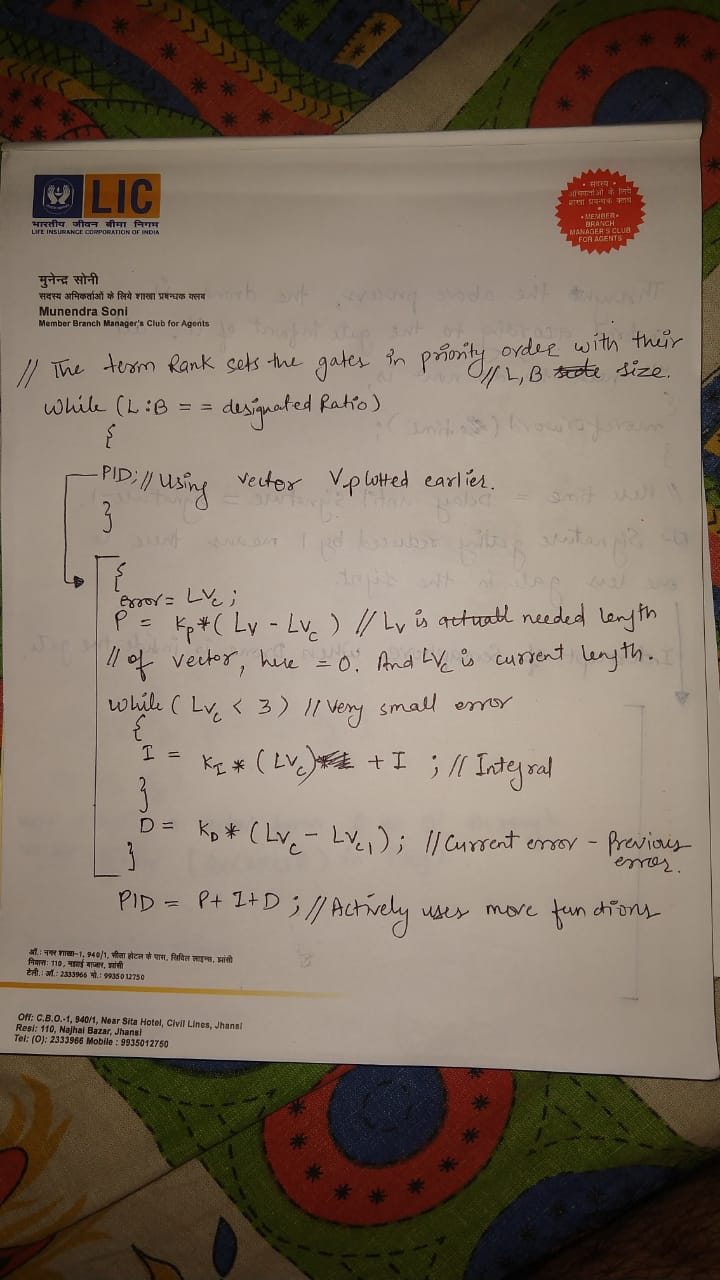 LIC
भारतीय जीवन बीमा निगम
LIFE INSURANCE CORPORATION OF INDIA
• सदस्य •
अभिकर्ताओं के लिये
शाखा प्रबन्धक क्लब
• MEMBER •
BRANCH
MANAGER'S CLUB
FOR AGENTS
मुनेन्द्र सोनी
सदस्य अभिकर्ताओं के लिये शाखा प्रबन्धक क्लब
Munendra Soni
Member Branch Manager's Club for Agents
// The term Rank sets the gates in priority order with their
// L, B size.
while (L:B == designated Ratio)
{
PID; // Using vector V plotted earlier.
}
{
error = LVc;
P = Kp*(LV - LVc) // LV is actuall needed length
// of vector, here = 0. And LVc is current length.
while (LVc < 3) // Very small error
{
I = KI * (LVc) + I ; // Integral
}
D = KD * (LVc - LVc1); // Current error - Previous
error.
}
PID = P+I+D ; // Actively uses more functions
ऑ.: नगर शाखा-1, 940/1, सीता होटल के पास, सिविल लाइन्स, झांसी
निवास: 110, नझाई बाजार, झांसी
टेली.: ऑ.: 2333966 मो.: 9935012750
Off: C.B.O.-1, 940/1, Near Sita Hotel, Civil Lines, Jhansi
Resi: 110, Najhai Bazar, Jhansi
Tel: (O): 2333966 Mobile : 9935012750